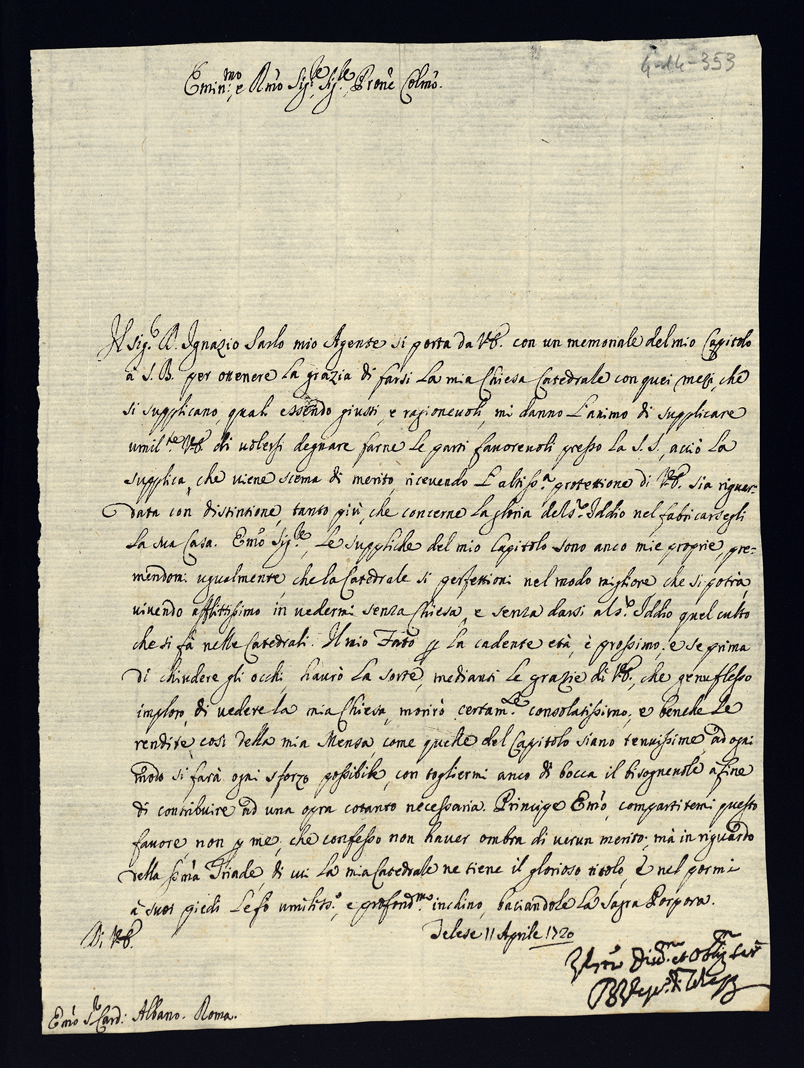 6-14-353
Emin:mo, e Rmo Sig:re, Sig:re, Prone Colmo.
Il sig:r D. Ignazio Sarlo mio Agente si porta da V.E. con un memoriale del mio Capitolo
a S. B. per ottenere la grazia di farsi la mia Chiesa Catedrale con quei mezi, che
si supplicano, quali essendo giusti, e ragionevoli, mi danno l'animo di supplicare
umil:te V.E. di volersi degnare farne le parti favorevoli presso la S. S., acciò la
supplica, che viene scema di merito, ricevendo l'altiss:a protettione di V.E. sia riguar-
data con distintione, tanto più, che concerne la gloria del S:r Iddio nel fabricarsegli
la sua Casa. Emo Sig:re, le suppliche del mio Capitolo sono anco mie proprie, pre-
mendomi ugualmente che la Catedrale si perfettioni nel modo migliore che si potrà,
vivendo afflittissimo in vedermi senza Chiesa, e senza darsi al S:r Iddio quel culto
che si fà nelle Catedrali. Il mio Fato p la cadente età, è prossimo; e se prima
di chiudere gli occhi, haurò la sorte, medianti le grazie di V.E., che genuflesso
imploro, di vedere la mia Chiesa, morirò certam:te consolatissimo, e benche le
rendite così della mia Mensa, come quelle del Capitolo siano tenuissime, ad ogni
modo si farà ogni sforzo possibile, con togliermi anco di bocca il bisognevole a fine
di contribuire ad una opra cotanto necessaria. Principe Emo, compartitemi questo
favore non p me, che confesso non haver ombra di verun merito; mà in riguardo
della ssma Triade, di cui la mia Catedrale ne tiene il glorioso titolo, e nel pormi
a suoi piedi le fo umiliss:o, e profond:mo inchino, baciandole la Sagra Porpora.
Di V.E.
Telese 11 Aprile 1720
Divmo et Obligmo Serre
Emo S:r Card: Albano. Roma.